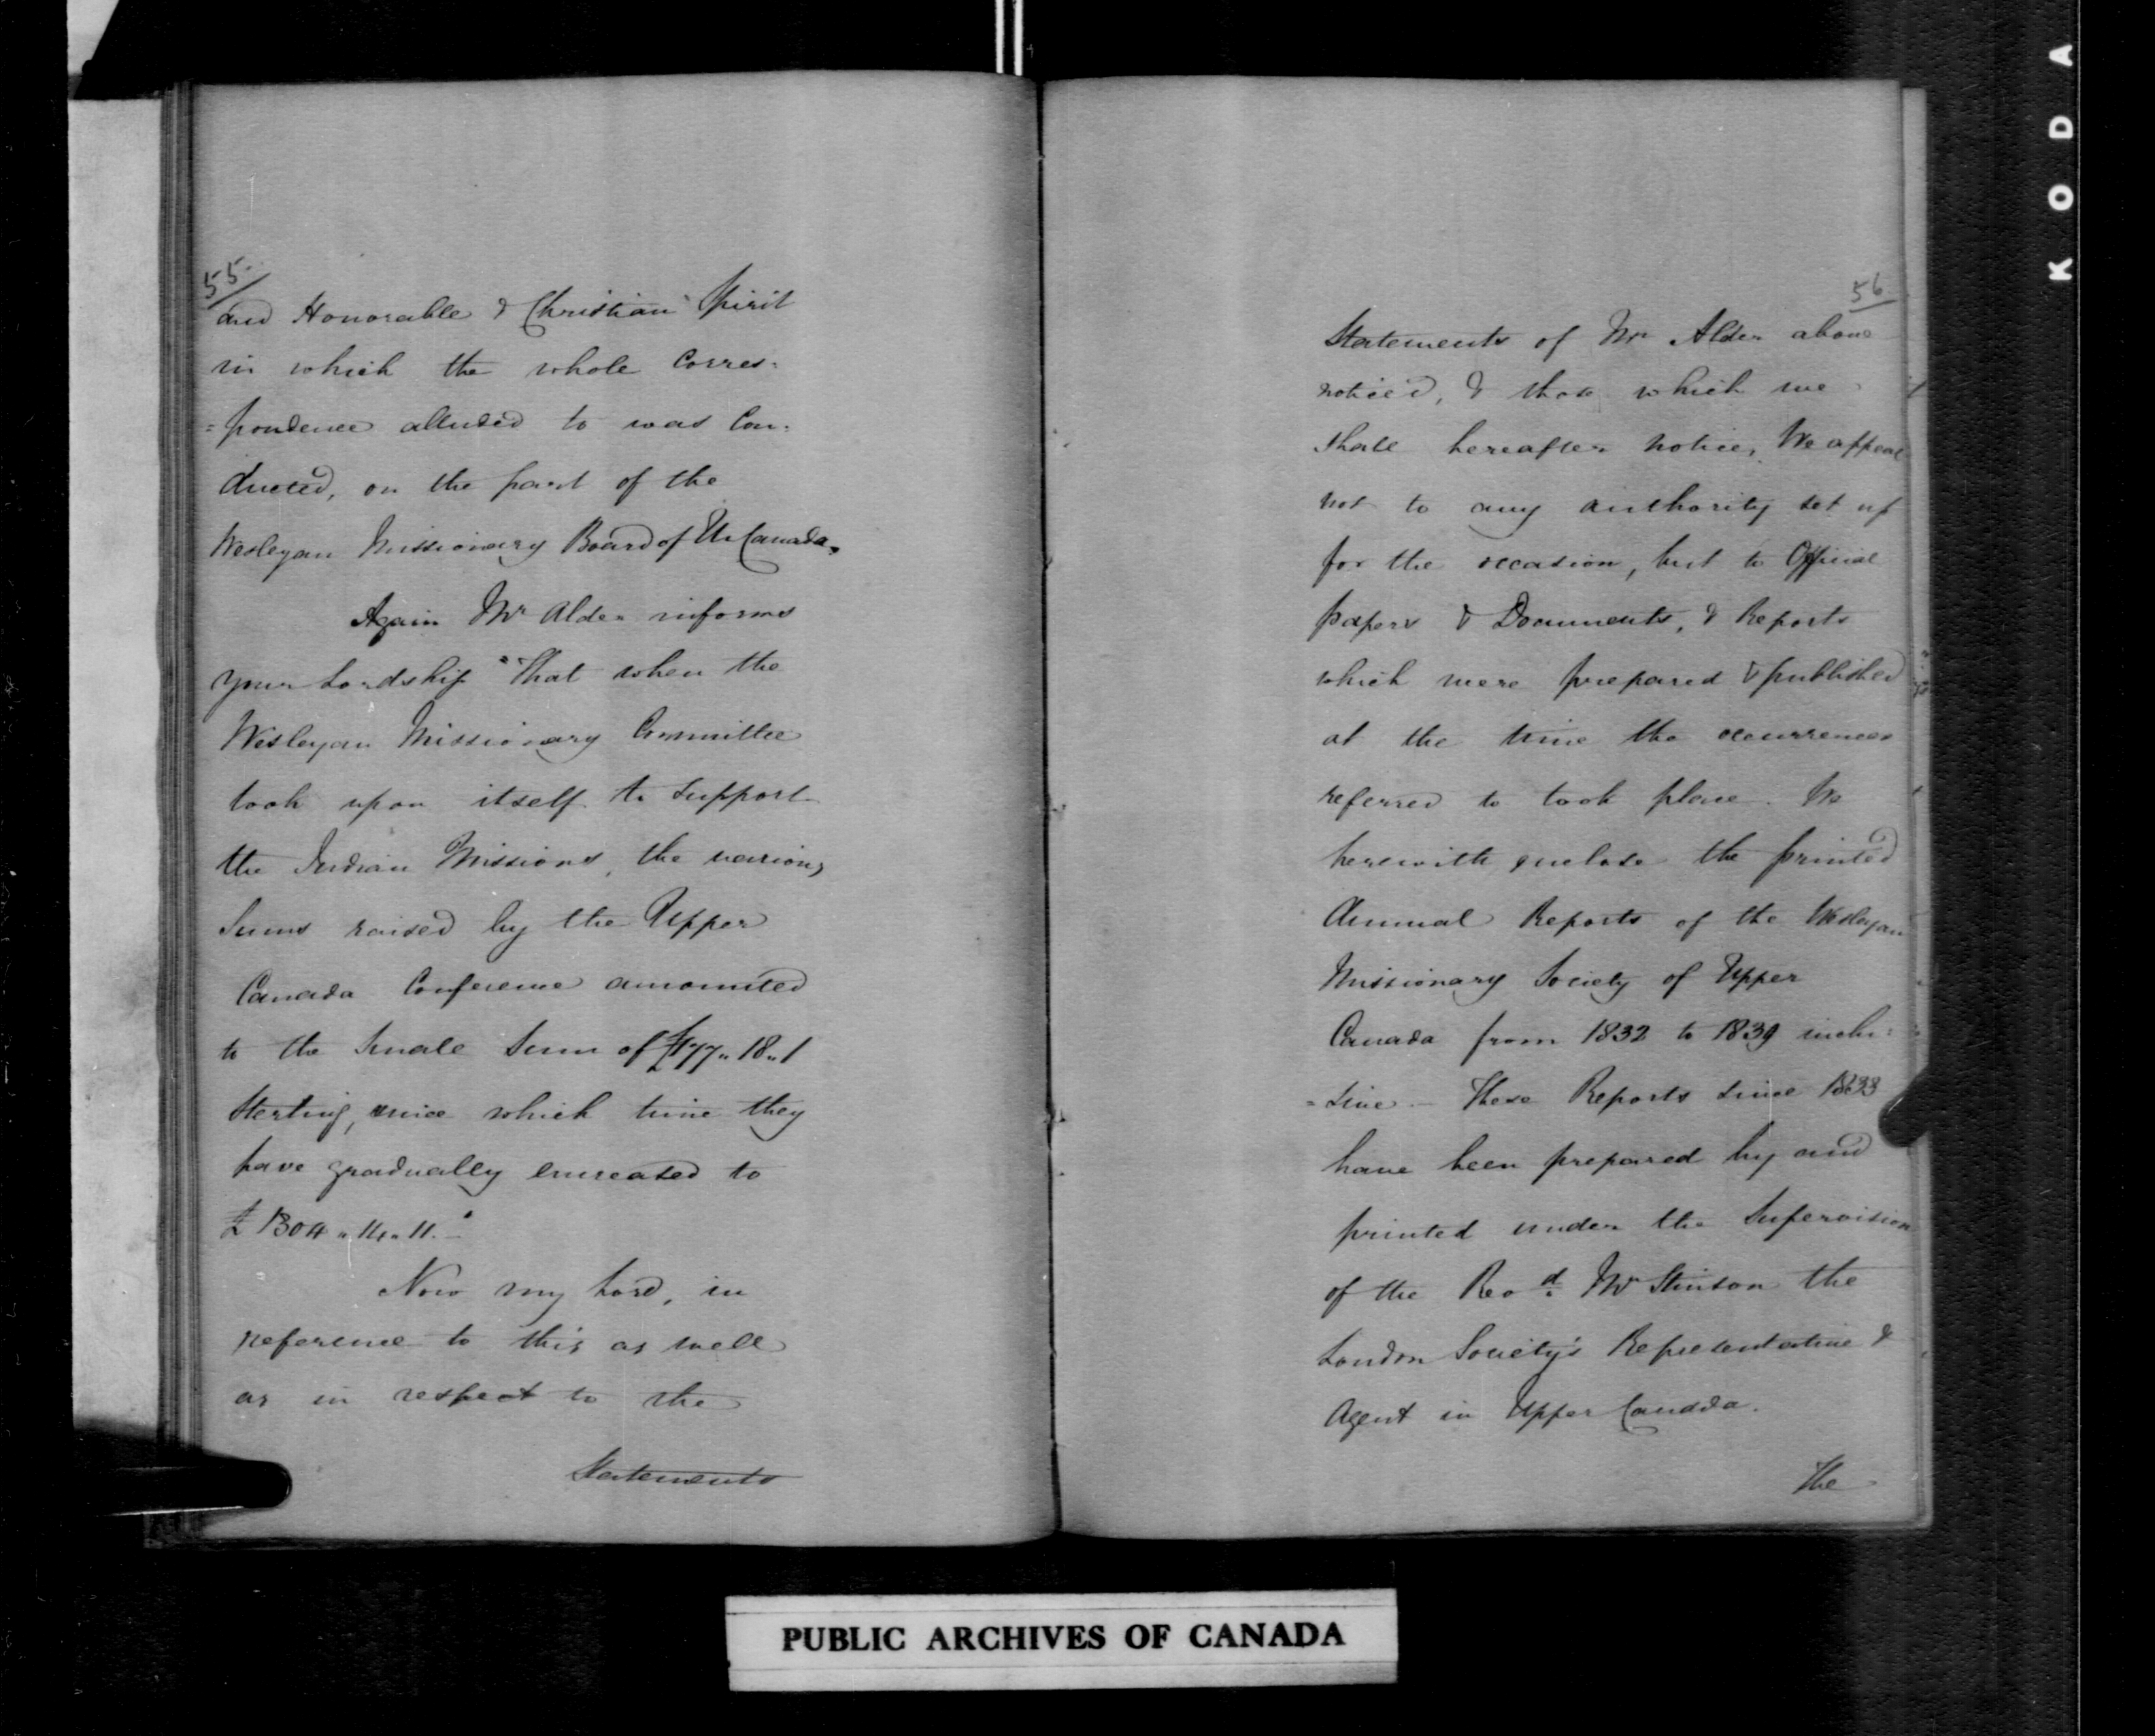 55.
and Honorable & Christian Spirit
in which the whole Corres:
=pondence alluded to was Con:
ducted, on the part of the
Wesleyan Missionary Board of U. Canada.
Again Mr Alder informs
your Lordship "That when the
Wesleyan Missionary Committee
took upon itself to Support
the Indian Missions, the various
Sums raised by the Upper
Canada Conference amounted
to the Small Sum of £177 " 18 " 1
Sterling, since which time they
have gradually encreased to
£1304 " 14 " 11."
Now my Lord, in
reference to this as well
as in respect to the
Statements
56
Statements of Mr Alder above
notice'd, & those which we
shall hereafter notice, We appeal
not to any authority set up
for the occasion, but to Official
papers & Documents, & Reports
which were prepared & published
at the time the occurrences
referred to took place. We
herewith enclose the printed
Annual Reports of the Wesleyan
Missionary Society of Upper
Canada from 1832 to 1839 inclu:
=sive – These Reports since 1833
have been prepared by and
printed under the Supervision
of the Revd. Mr Stinson the
London Society's Representative &
Agent in Upper Canada.
The
PUBLIC ARCHIVES OF CANADA
K O D A